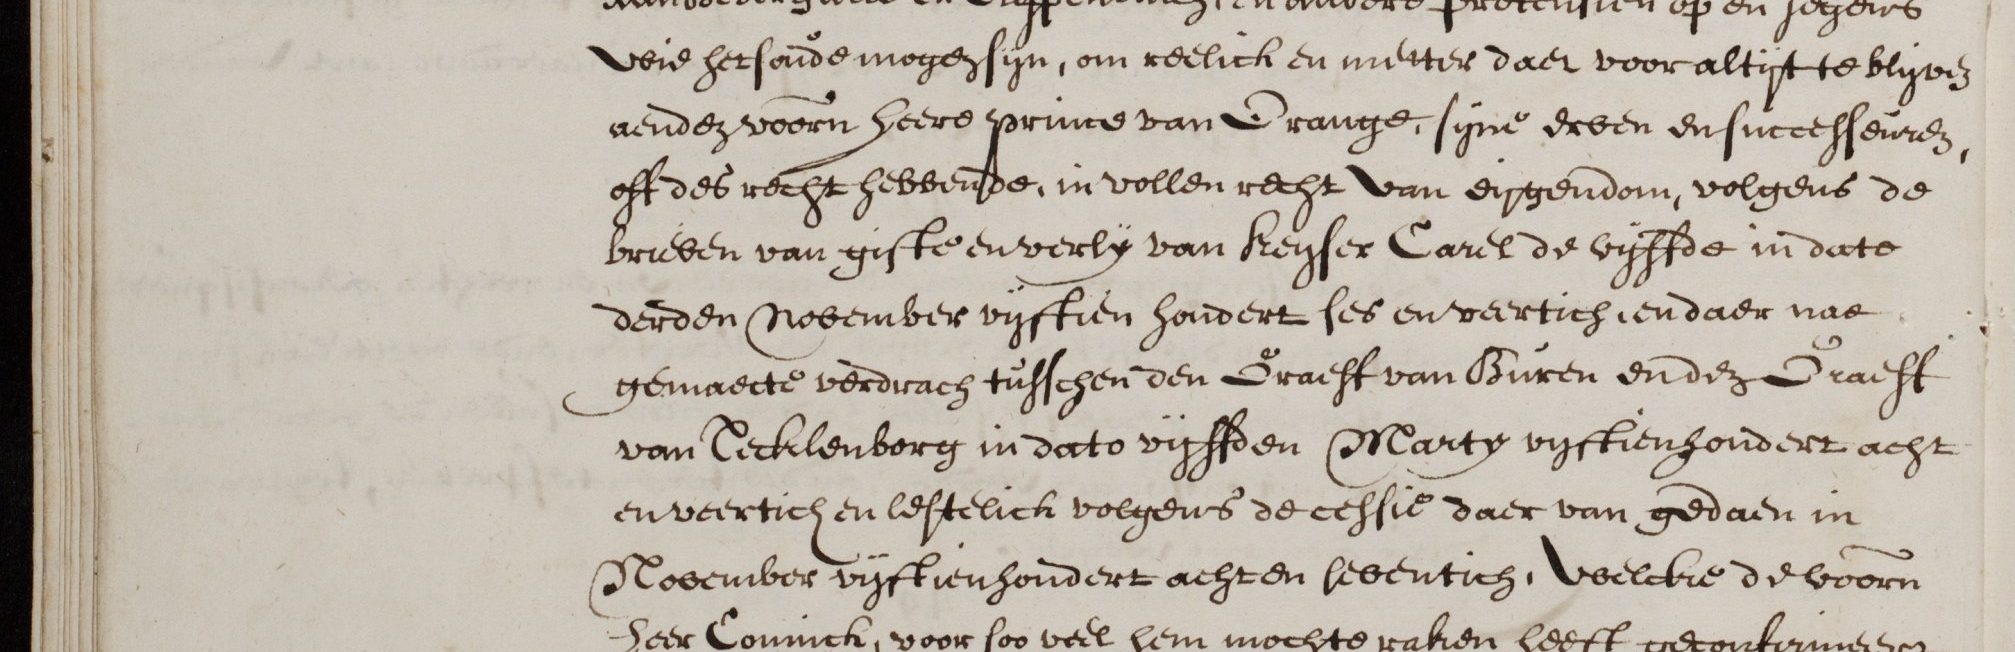 en andere pretensien op en jegens
wie het soude mogen sijn, om reelick en metter daet voor altijt te blijven
aenden voorn heere prince van Orange, sijne erven en successeuren,
oft des recht hebbende, in vollen recht van eijgendom, volgens de
brieven van gifte en verlij van Keijser Carel de vijffde in dato
derden November vijftien hondert ses en veertich, en daer nae
gemaecte verdrach tusschen den Graeff van Buren enden Graeff
van Tecklenborg in dato vijffden Marty vijftienhondert acht
en veertich en lestelick volgens de cessie daer van gedaen in
November vijftienhondert acht en seventich, Welcke de voorn
heer Coninck, voor soo veel hem mochte raken heeft geconfirmeert